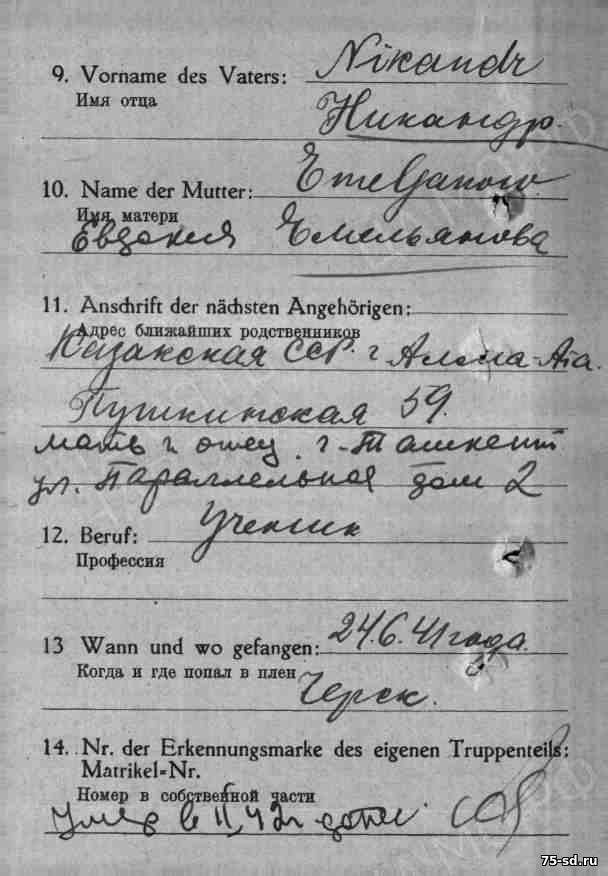 9. Vorname des Vaters: Nikandr
Имя отца
Никандр.
10. Name der Mutter: Emeljanow
Имя матери
Евдокия Емельянова
11. Anschrift der nächsten Angehörigen:
Адрес ближайших родственников
Казакская ССР. г Алма-Ата.
Пушкинская 59.
мать и отец. г-Ташкент
ул. Параллельная дом 2
12. Beruf: Ученик
Профессия
13 Wann und wo gefangen: 24.6.41 года.
Когда и где попал в плен
Черск.
14. Nr. der Erkennungsmarke des eigenen Truppenteils:
Matrikel=Nr.
Номер в собственной части
Умер в 42г
75-sd.ru